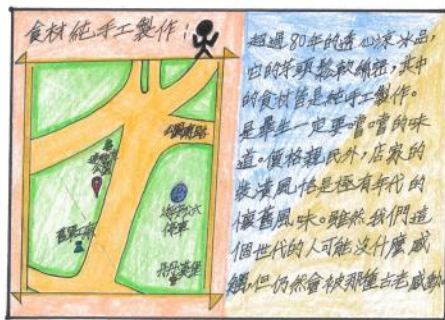 食材純手工製作!
超過80年的透心涼冰品,
它的芋頭鬆軟綿密,其中
的食材皆是純手工製作。
是畢生一定要嚐嚐的味
道。價格親民外,店家的
裝潢風格是極有年代的
懷舊風味。雖然我們這
個世代的人可能沒什麼感
觸,但仍然會被那種古老感動
公園
停車
丹丹漢堡